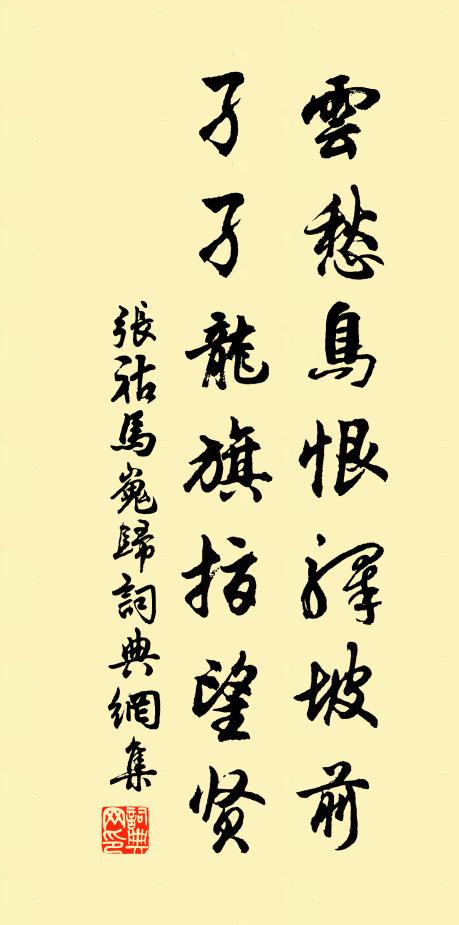 雲愁鳥恨驛坡前
孑孑龍旗指望贤
張祜馬嵬歸詞典網集
詞典网印